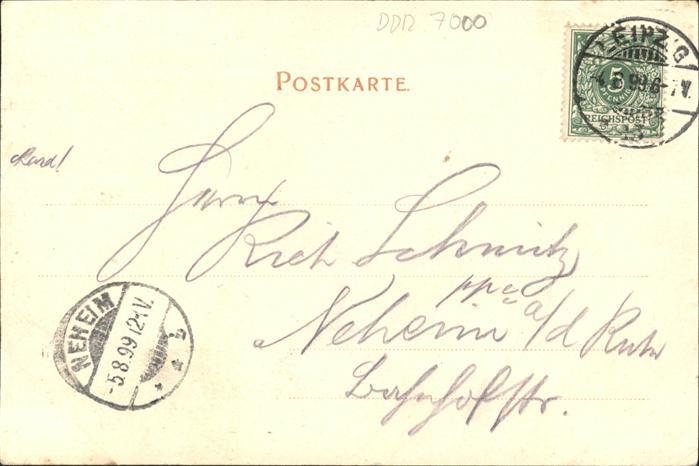 DDR 7000
POSTKARTE.
LEIPZIG
-4.8.99.6-7V.
5
REICHSPOST
Herrn
Rich. Schmitz
Neheim a/d Ruhr
Bahnhofstr.
NEHEIM
-5.8.99.12-1V.